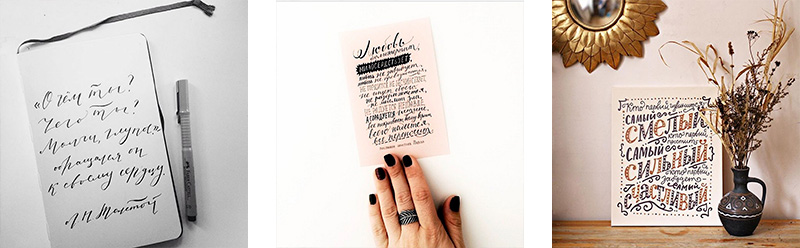 «О чём ты?
Чего ты?
Молчи, глупое»
обращался он
к своему сердцу.
Л.Н. Толстой
Любовь
долготерпит,
МИЛОСЕРДСТВУЕТ,
любовь не завидует,
любовь не превозносится,
НЕ ГОРДИТСЯ, НЕ БЕСЧИНСТВУЕТ,
не ищет своего,
не раздражается,
не мыслит зла,
НЕ РАДУЕТСЯ НЕПРАВДЕ,
А СОРАДУЕТСЯ истине,
все покрывает, всему верит,
всего надеется,
все переносит.
апостола Павла
Кто первый
САМЫЙ
СМЕЛЫЙ
кто первый
простит
САМЫЙ
СИЛЬНЫЙ
кто первый
забудет
самый
СЧАСТЛИВЫЙ